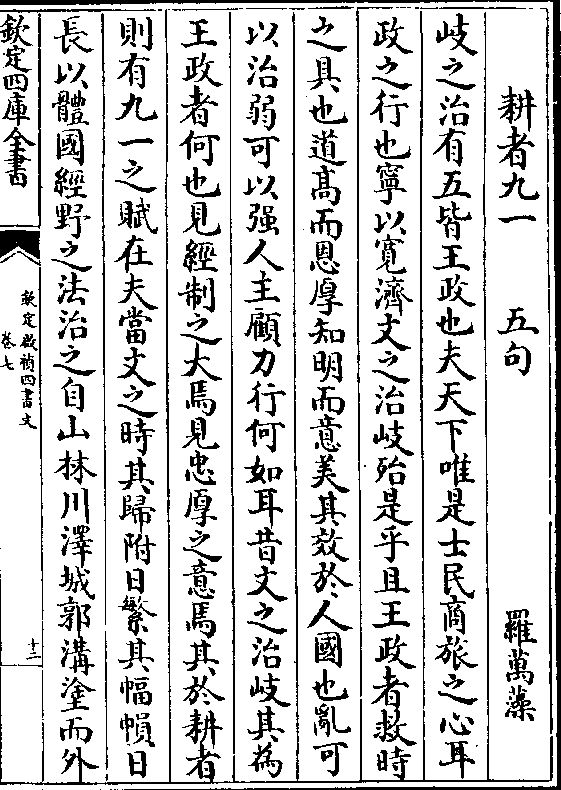 耕者九一　五句　羅萬藻
岐之治有五皆王政也夫天下唯是士民商旅之心耳
政之行也寧以寛濟文之治岐殆是乎且王政者救時
之具也道髙而恩厚知明而意美其效於人國也亂可
以治弱可以强人主顧力行何如耳昔文之治岐其為
王政者何也見經制之大焉見忠厚之意焉其於耕者
則有九一之賦在夫當文之時其歸附日繁其幅帽日
長以體國經野之法治之自山林川澤城郭溝塗而外
欽定四庫全書
欽定啟禎四書文
卷七
十二